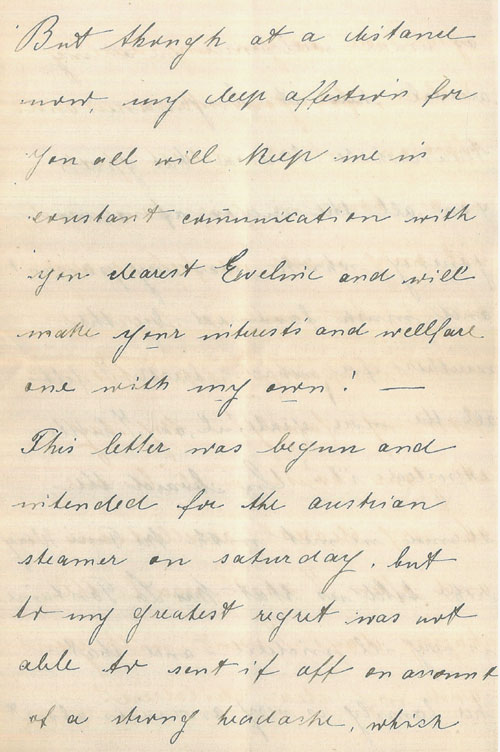 But though at a distance
now, my deep affection for
you all will keep me in
constant communication with
you dearest Eveline and will
make your interests and wellfare
one with my own! —
This letter was begun and
intended for the austrian
steamer on saturday, but
to my greatest regret was not
able to sent it off on account
of a strong headache, which